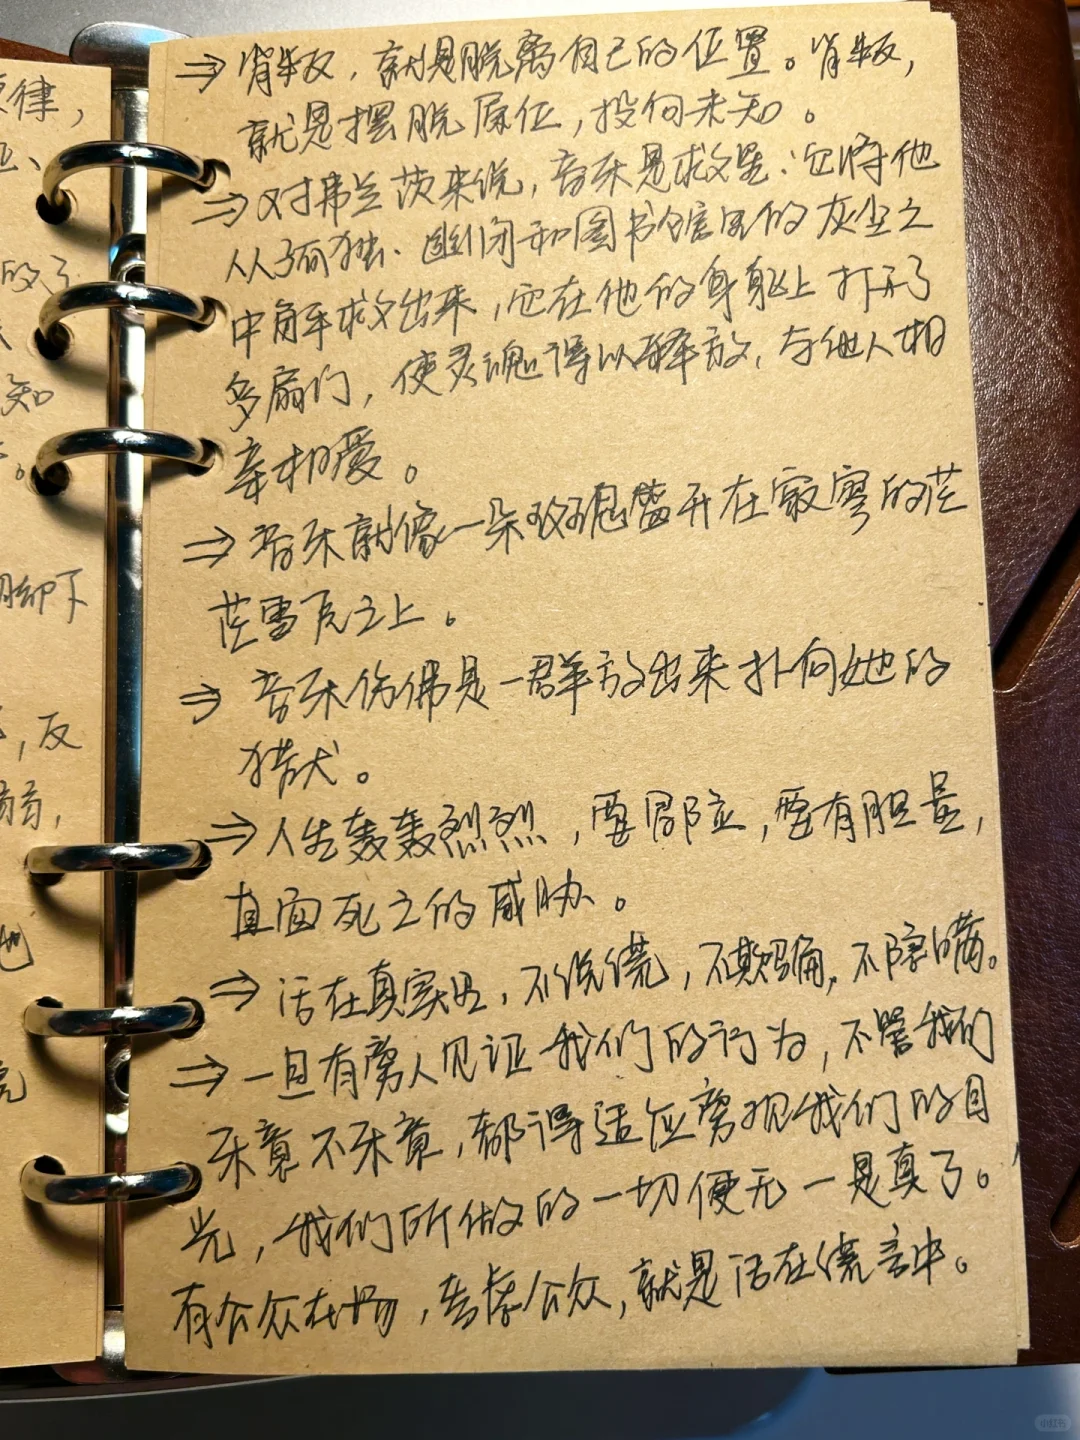 律，
的了
知
却下
，反
弱，
⇒ 背叛，就是脱离自己的位置。背叛，
就是摆脱原位，投向未知。
⇒ 对弗兰茨来说，音乐是救星：它将他
从孤独、幽闭和图书馆里的灰尘之
中解救出来，它在他的身躯上打开了
多扇门，使灵魂得以释放，与他人相
亲相爱。
⇒ 音乐就像一朵玫瑰盛开在寂寥的茫
茫雪原之上。
⇒ 音乐仿佛是一群放出来扑向她的
猎犬。
⇒ 人生轰轰烈烈，要冒险，要有胆量，
直面死亡的威胁。
⇒ 活在真实里，不说谎，不欺骗，不隐瞒。
⇒ 一旦有旁人见证我们的行为，不管我们
乐意不乐意，都得适应旁观我们的目
光，我们所做的一切便无一是真了。
有公众在场，考虑公众，就是活在谎言中。
小红书